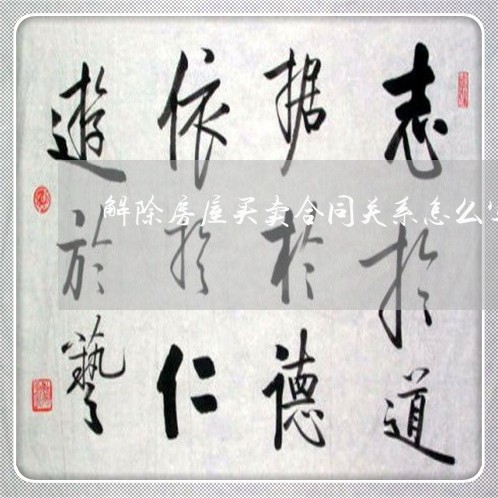 志於道
据於德
依於仁
遊於藝
解除房屋买卖合同关系怎么